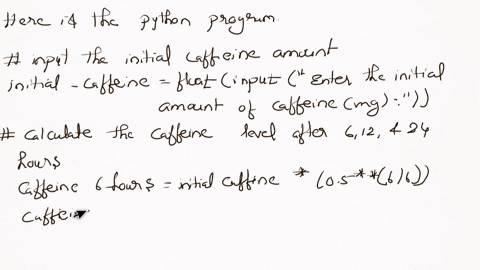 Here is the python program.
# input the initial caffeine amount
initial - caffeine = float (input (" Enter the initial
amount of caffeine (mg) : "))
# Calculate the caffeine level after 6, 12, & 24
hours
Caffeine 6 hours = initial caffine * (0.5 ** (6/6))
Caffei